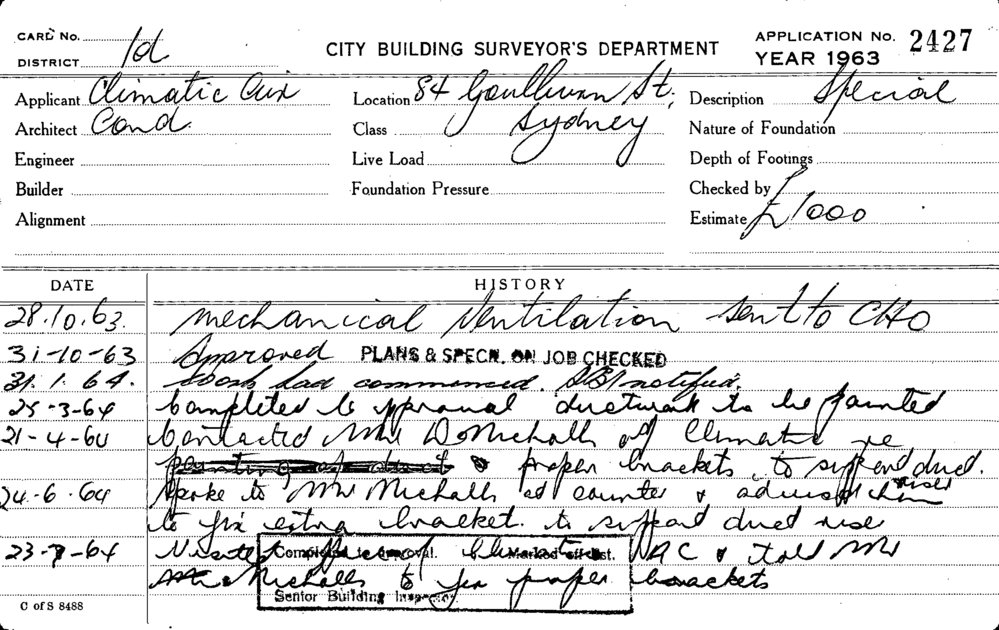 CARD No.
DISTRICT 1d
CITY BUILDING SURVEYOR'S DEPARTMENT
APPLICATION No. 2427
YEAR 1963
Applicant Climatic Air
Location 84 Goulburn St;
Description Special
Architect Cond.
Class Sydney
Nature of Foundation
Engineer
Live Load
Depth of Footings
Builder
Foundation Pressure
Checked by
Alignment
Estimate £1000
DATE HISTORY
28.10.63. Mechanical Ventilation sent to CHO
31-10-63 Approved PLANS & SPECN. ON JOB CHECKED
31.1.64. Work had commenced. notified.
25-3-64 Completed to approval ductwork to be painted
21-4-64 Contacted Mr Nicholls of Climatic re
painting of duct & proper brackets to support duct.
24-6-64 Spoke to Mr Nicholls at counter & advised him
to fix extra bracket to support duct rise
riser
23-7-64 Visited of Climatic A C & told Mr
Nicholls to fix proper brackets
Completed to approval. Marked off list.
Senior Building Inspector.
C of S 8488